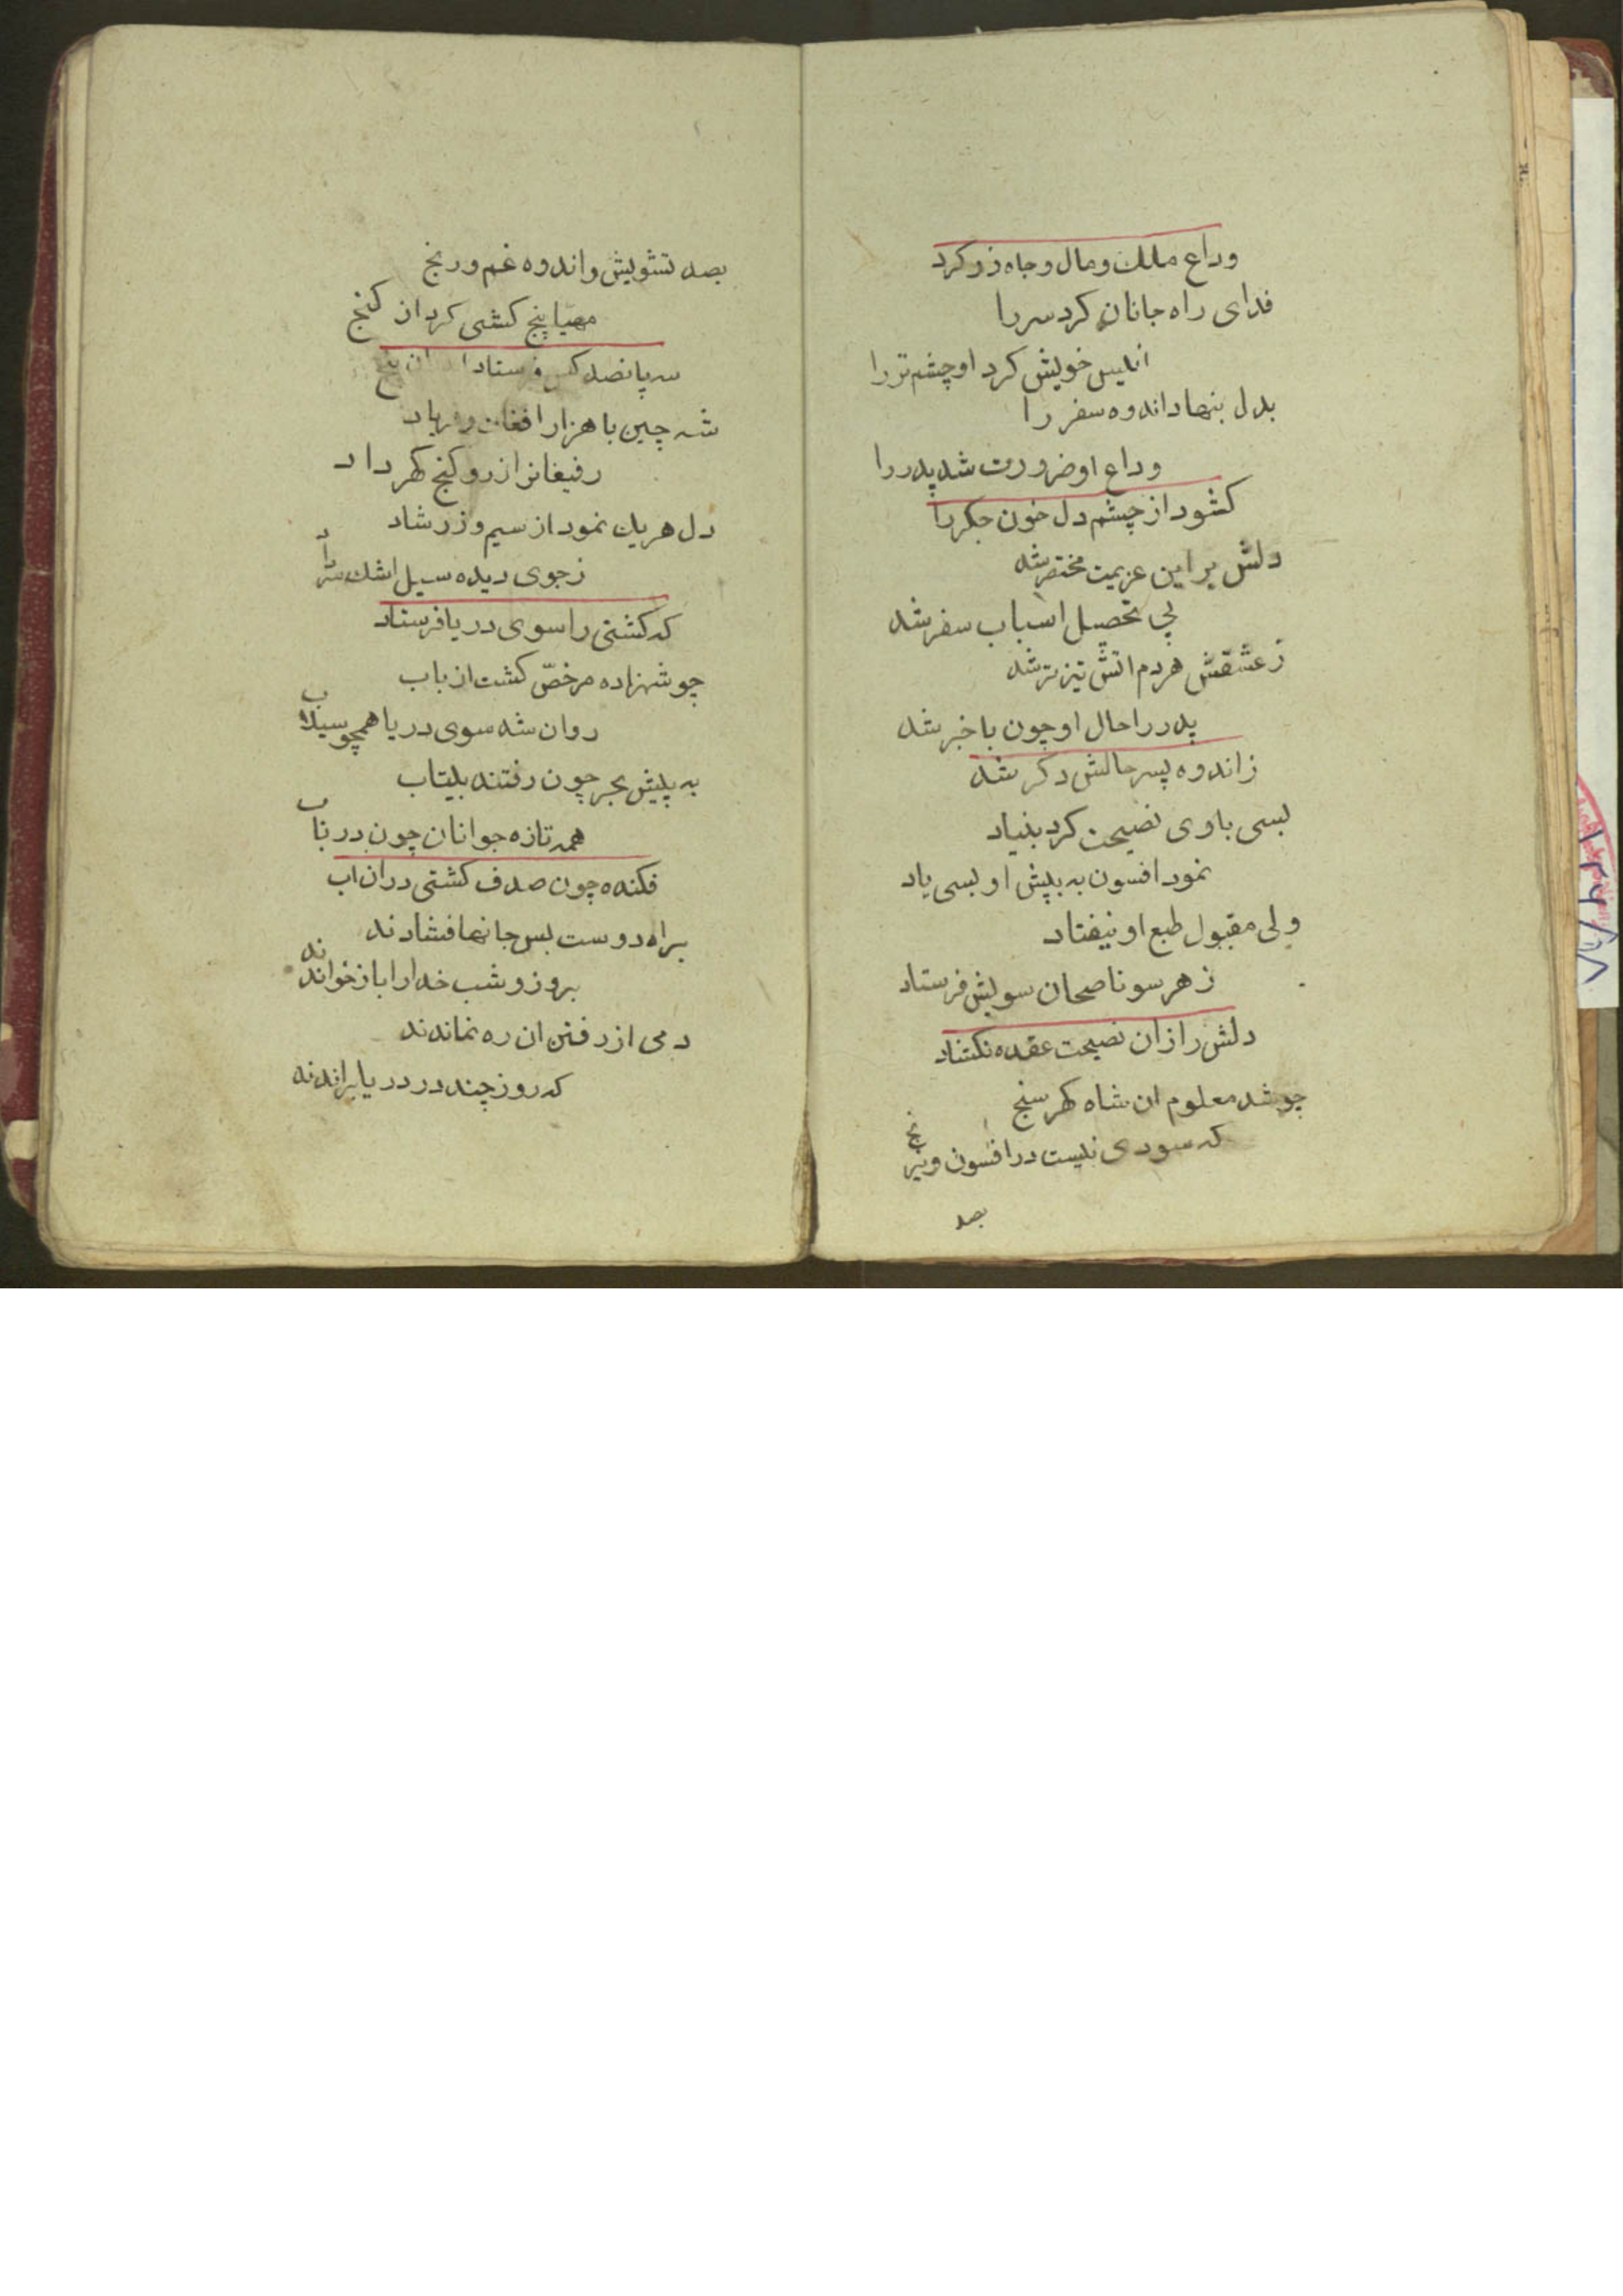 وداع ملك ومال وجاه زر كرد
فداى راه جانان كرد سر را
انيس خويش كرد او چشم تر را
بدل بنهاد اندوه سفر را
وداع او ضرورت شد پدر را
كشود از چشم دل خون جكر را
دلش بر اين عزيمت مختصر شد
پي تحصيل اسباب سفر شد
زعشقش هردم اتش تيزتر شد
پدر را حال او چون باخبر شد
زاندوه پسر حالش دكر شد
بسى باوى نصيحت كرد بنياد
نمود افسون به پيش او بسى ياد
ولى مقبول طبع او نيفتاد
زهر سو ناصحان سويش فرستاد
دلش را زان نصيحت عقده نكشاد
چو شد معلوم ان شاه كهر سنج
كه سودى نيست در افسون و نيرنج
بصد
بصد تشويش واندوه غم ورنج
مهيا پنج كشتى كرد از كنج
سه پانصد كس فرستاد ان پنج
شه چين با هزار افغان و فرياد
رفيقانرا زر و كنج كهر داد
دل هريك نمود از سيم وزر شاد
زجوى ديده سيل اشك سرداد
كه كشتى را سوى دريا فرستاد
چو شهزاده مرخصّ كشت از باب
روان شد سوى دريا همچو سيلاب
به پيش بحر چون رفتند بيتاب
همه تازه جوانان چون در ناب
فكنده چون صدف كشتى دران اب
براه دوست بس جانها فشاندند
بروز وشب خدا را باز خواندند
دمى از رفتن ان ره نماندند
كه روز چند در دريا براندند